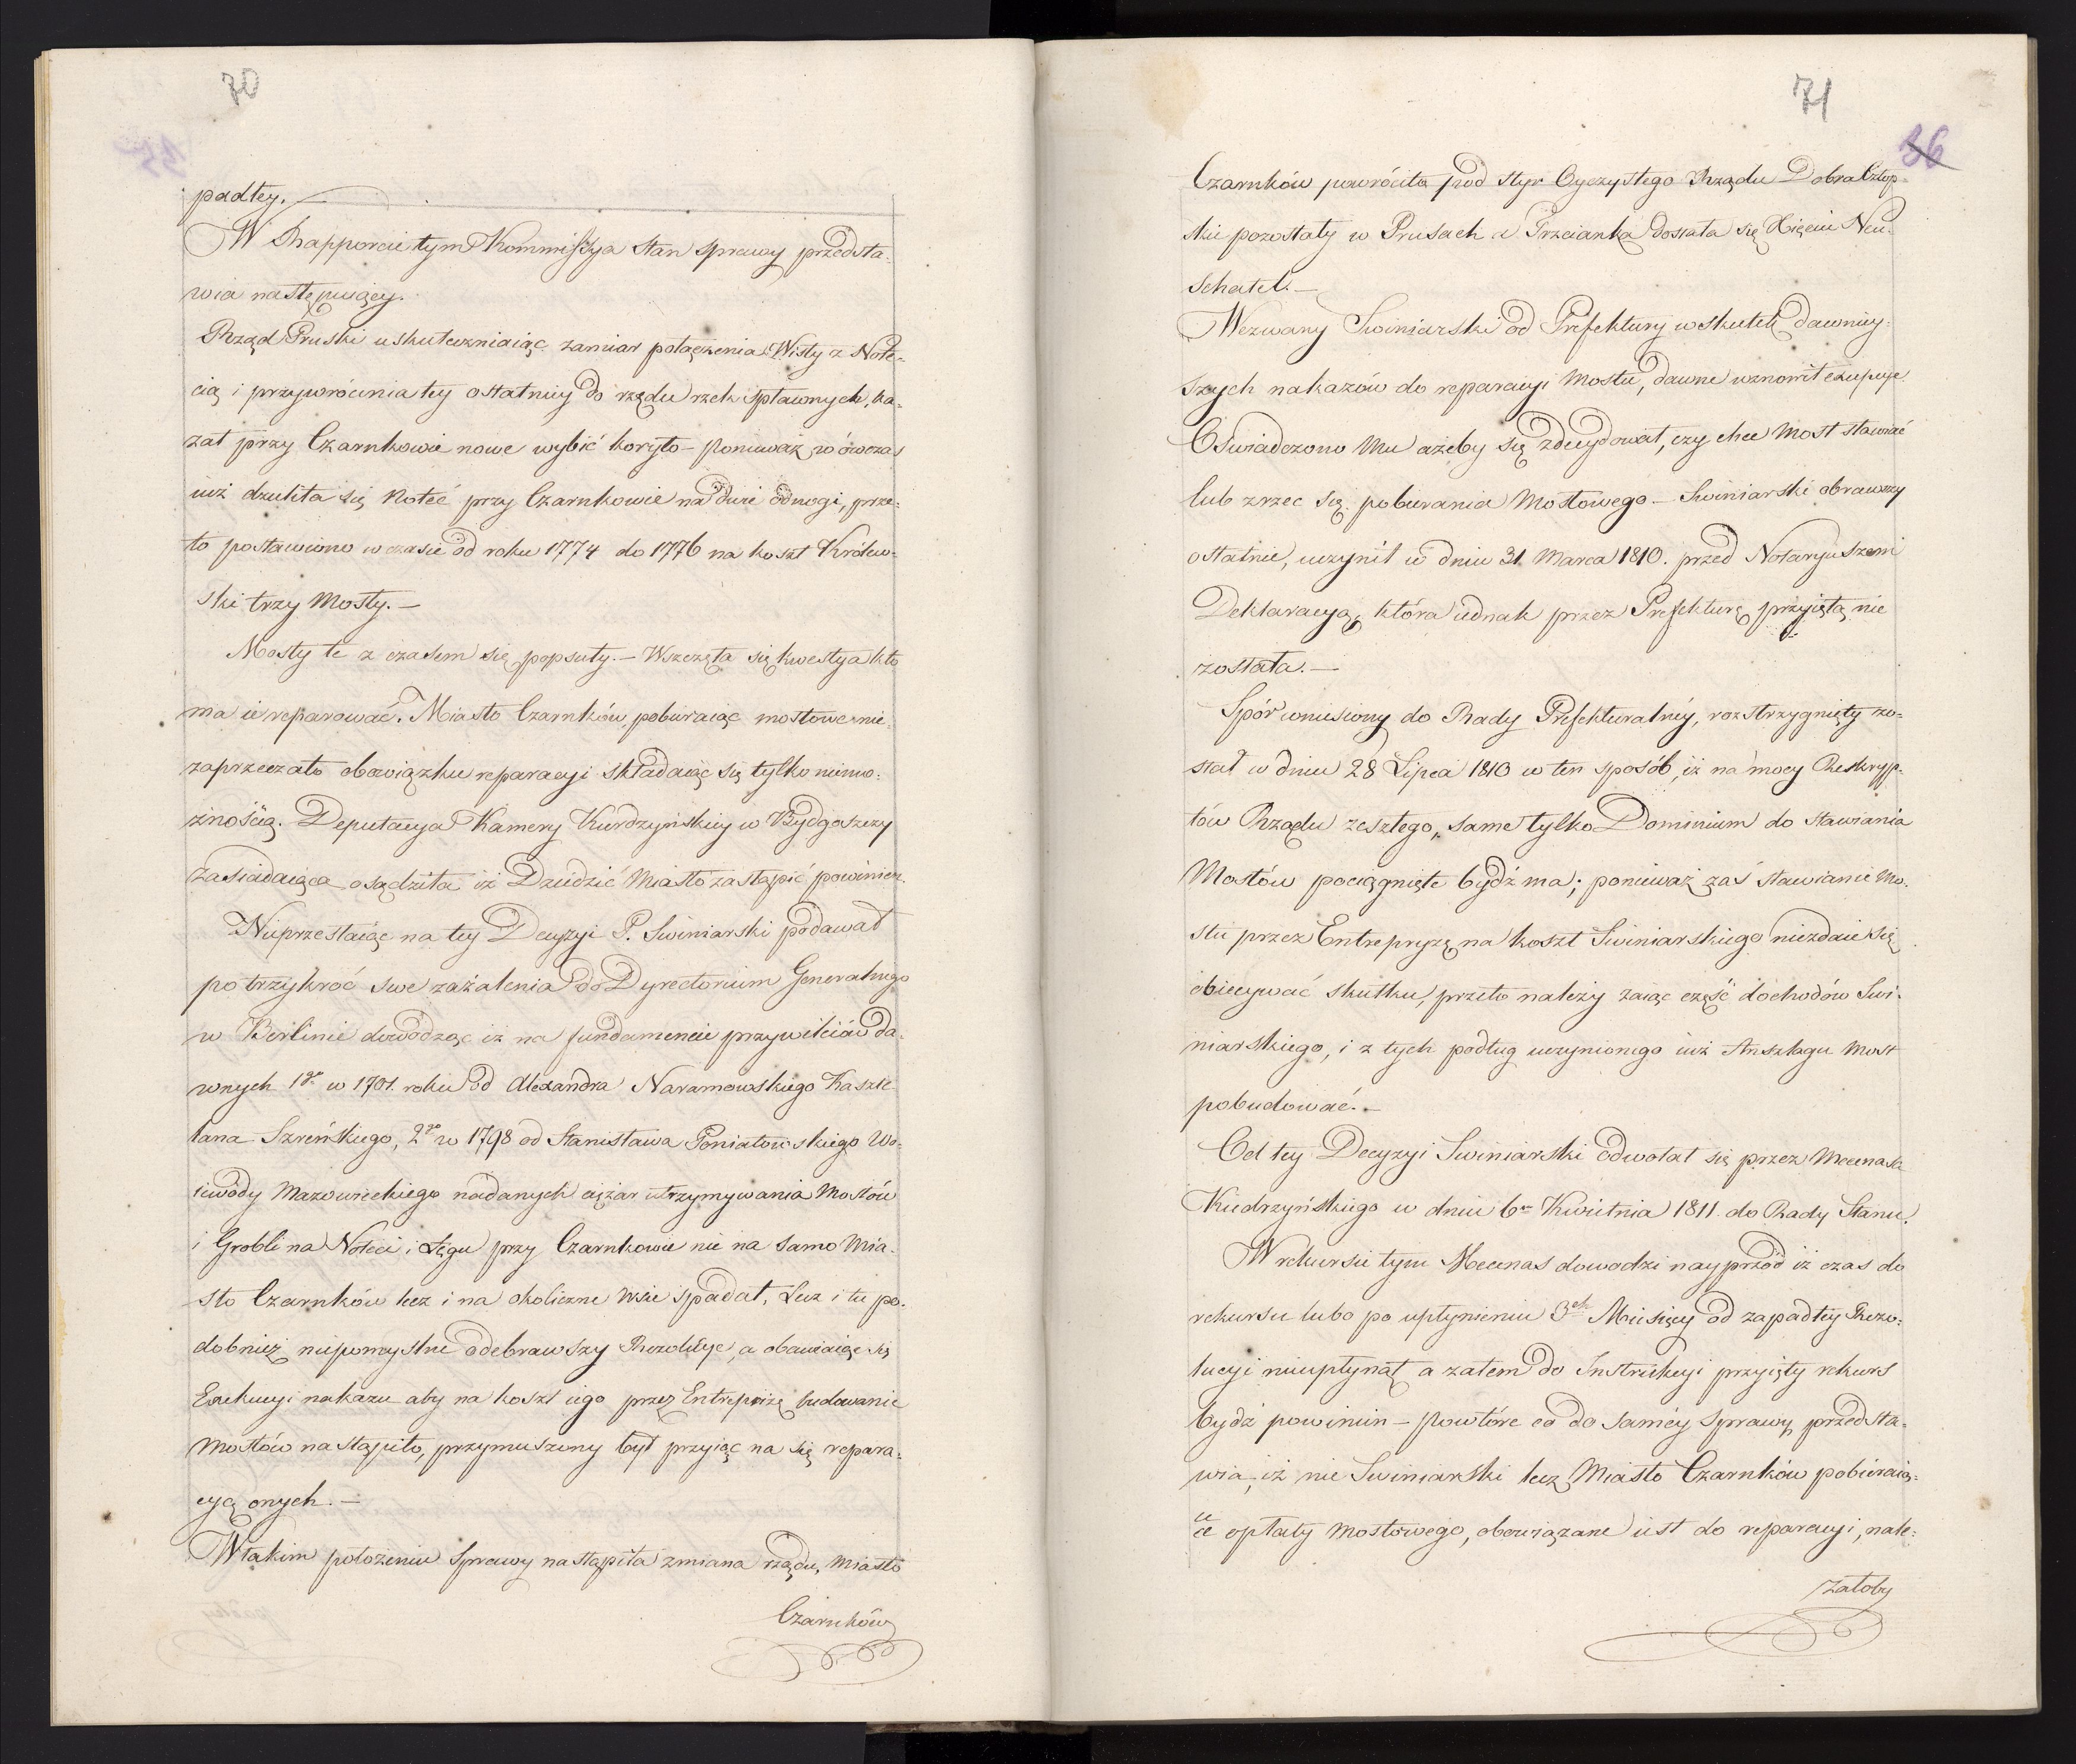 70
padłey. —
W Rapporcie tym Kommissya stan sprawy przedsta-
wia następuiący.
Rząd Pruski uskuteczniaiąc zamiar połączenia Wisły z Note-
cią i przywrócenia tey ostatniey do rzędu rzek spławnych, ka-
zał przy Czarnkowie nowe wybić koryto – ponieważ wówczas
iuż dzieliła się Noteć przy Czarnkowie na dwie odnogi, prze-
to postawiono w czasie od roku 1774 do 1776 na koszt Królew-
ski trzy Mosty. —
Mosty te z czasem się popsuły. — Wszczęła się kwestya kto
ma ie reparować. Miasto Czarnków pobieraiąc mostowe nie-
zaprzeczało obowiązku reparacyi składaiąc się tylko niemo-
żnością. Deputacya Kamery Kwidzyńskiey w Bydgoszczy
zasiadaiąca osądziła iż Dziedzic Miasto zastąpić powinien.
Nieprzestaiąc na tey Decyzyi P. Swiniarski podawał
po trzykroć swe zażalenia do Dyrectorium Generalnego
w Berlinie dowodząc iż na fundamencie przywileiów da-
wnych 1o w 1701. roku od Alexandra Naramowskiego Kaszte-
lana Szreńskiego, 2o w 1798 od Stanisława Poniatowskiego Wo-
iewody Mazowieckiego nadanych ciężar utrzymywania Mostów
i Grobli na Noteci i Łęgu przy Czarnkowie nie na samo Mia-
sto Czarnków lecz i na okoliczne wsie spadał, Lecz i tu po-
dobnież niepomyślne odebrawszy Rezolucye, a obawiaiąc się
Exekucyi nakazu aby na koszt iego przez Entrepryzę budowanie
Mostów nastąpiło, przymuszony był przyiąć na się repara-
cyą onych. —
W takim położeniu sprawy nastąpiła zmiana rządu, Miasto
Czarnków
71
36
Czarnków powróciło pod styr Oyczystego Rządu Dobra Człop-
skie pozostały w Prusach a Trzcianka dostała się Xięciu Neu-
schatel. —
Wezwany Swiniarski od Prefektury wskutek dawniey-
szych nakazów do reparacyi Mostu, dawne wznowił excepcye
Oświadczono Mu ażeby się zdecydował, czy chce Most stawiać
lub zrzec się pobierania Mostowego – Swiniarski obrawszy
ostatnie, uczynił w dniu 31. Marca 1810. przed Notaryuszem
Deklaracyą, która iednak przez Prefekturę przyiętą nie
została. —
Spór wniesiony do Rady Prefekturalney, rozstrzygnięty zo-
stał w dniu 28 Lipca 1810 w ten sposób, iż na mocy Reskryp-
tów Rządu zeszłego, same tylko Dominium do stawiania
Mostów pociągnięte bydź ma; ponieważ zaś stawianie Mo-
stu przez Entrepryzę na koszt Swiniarskiego niezdaie się
obiecywać skutku, przeto należy zaiąć część dochodów Swi-
niarskiego, i z tych podług uczynionego iuż Anszlagu Most
pobudować. —
Od tey Decyzyi Swiniarski odwołał się przez Mecenasa
Kiedrzyńskiego w dniu 6o Kwietnia 1811. do Rady Stanu.
W rekursie tym Mecenas dowodzi nayprzód iż czas do
rekursu lubo po upłynieniu 3ch Miesięcy od zapadłey Rezo-
lucyi nieupłynął a zatem do Instrukcyi przyięty rekurs
bydź powinien – powtóre co do saméy sprawy przedsta-
wia, iż nie Swiniarski lecz Miasto Czarnków pobieraią-
ce opłaty mostowego, obowiązane iest do reparacyi, nale-
żałoby